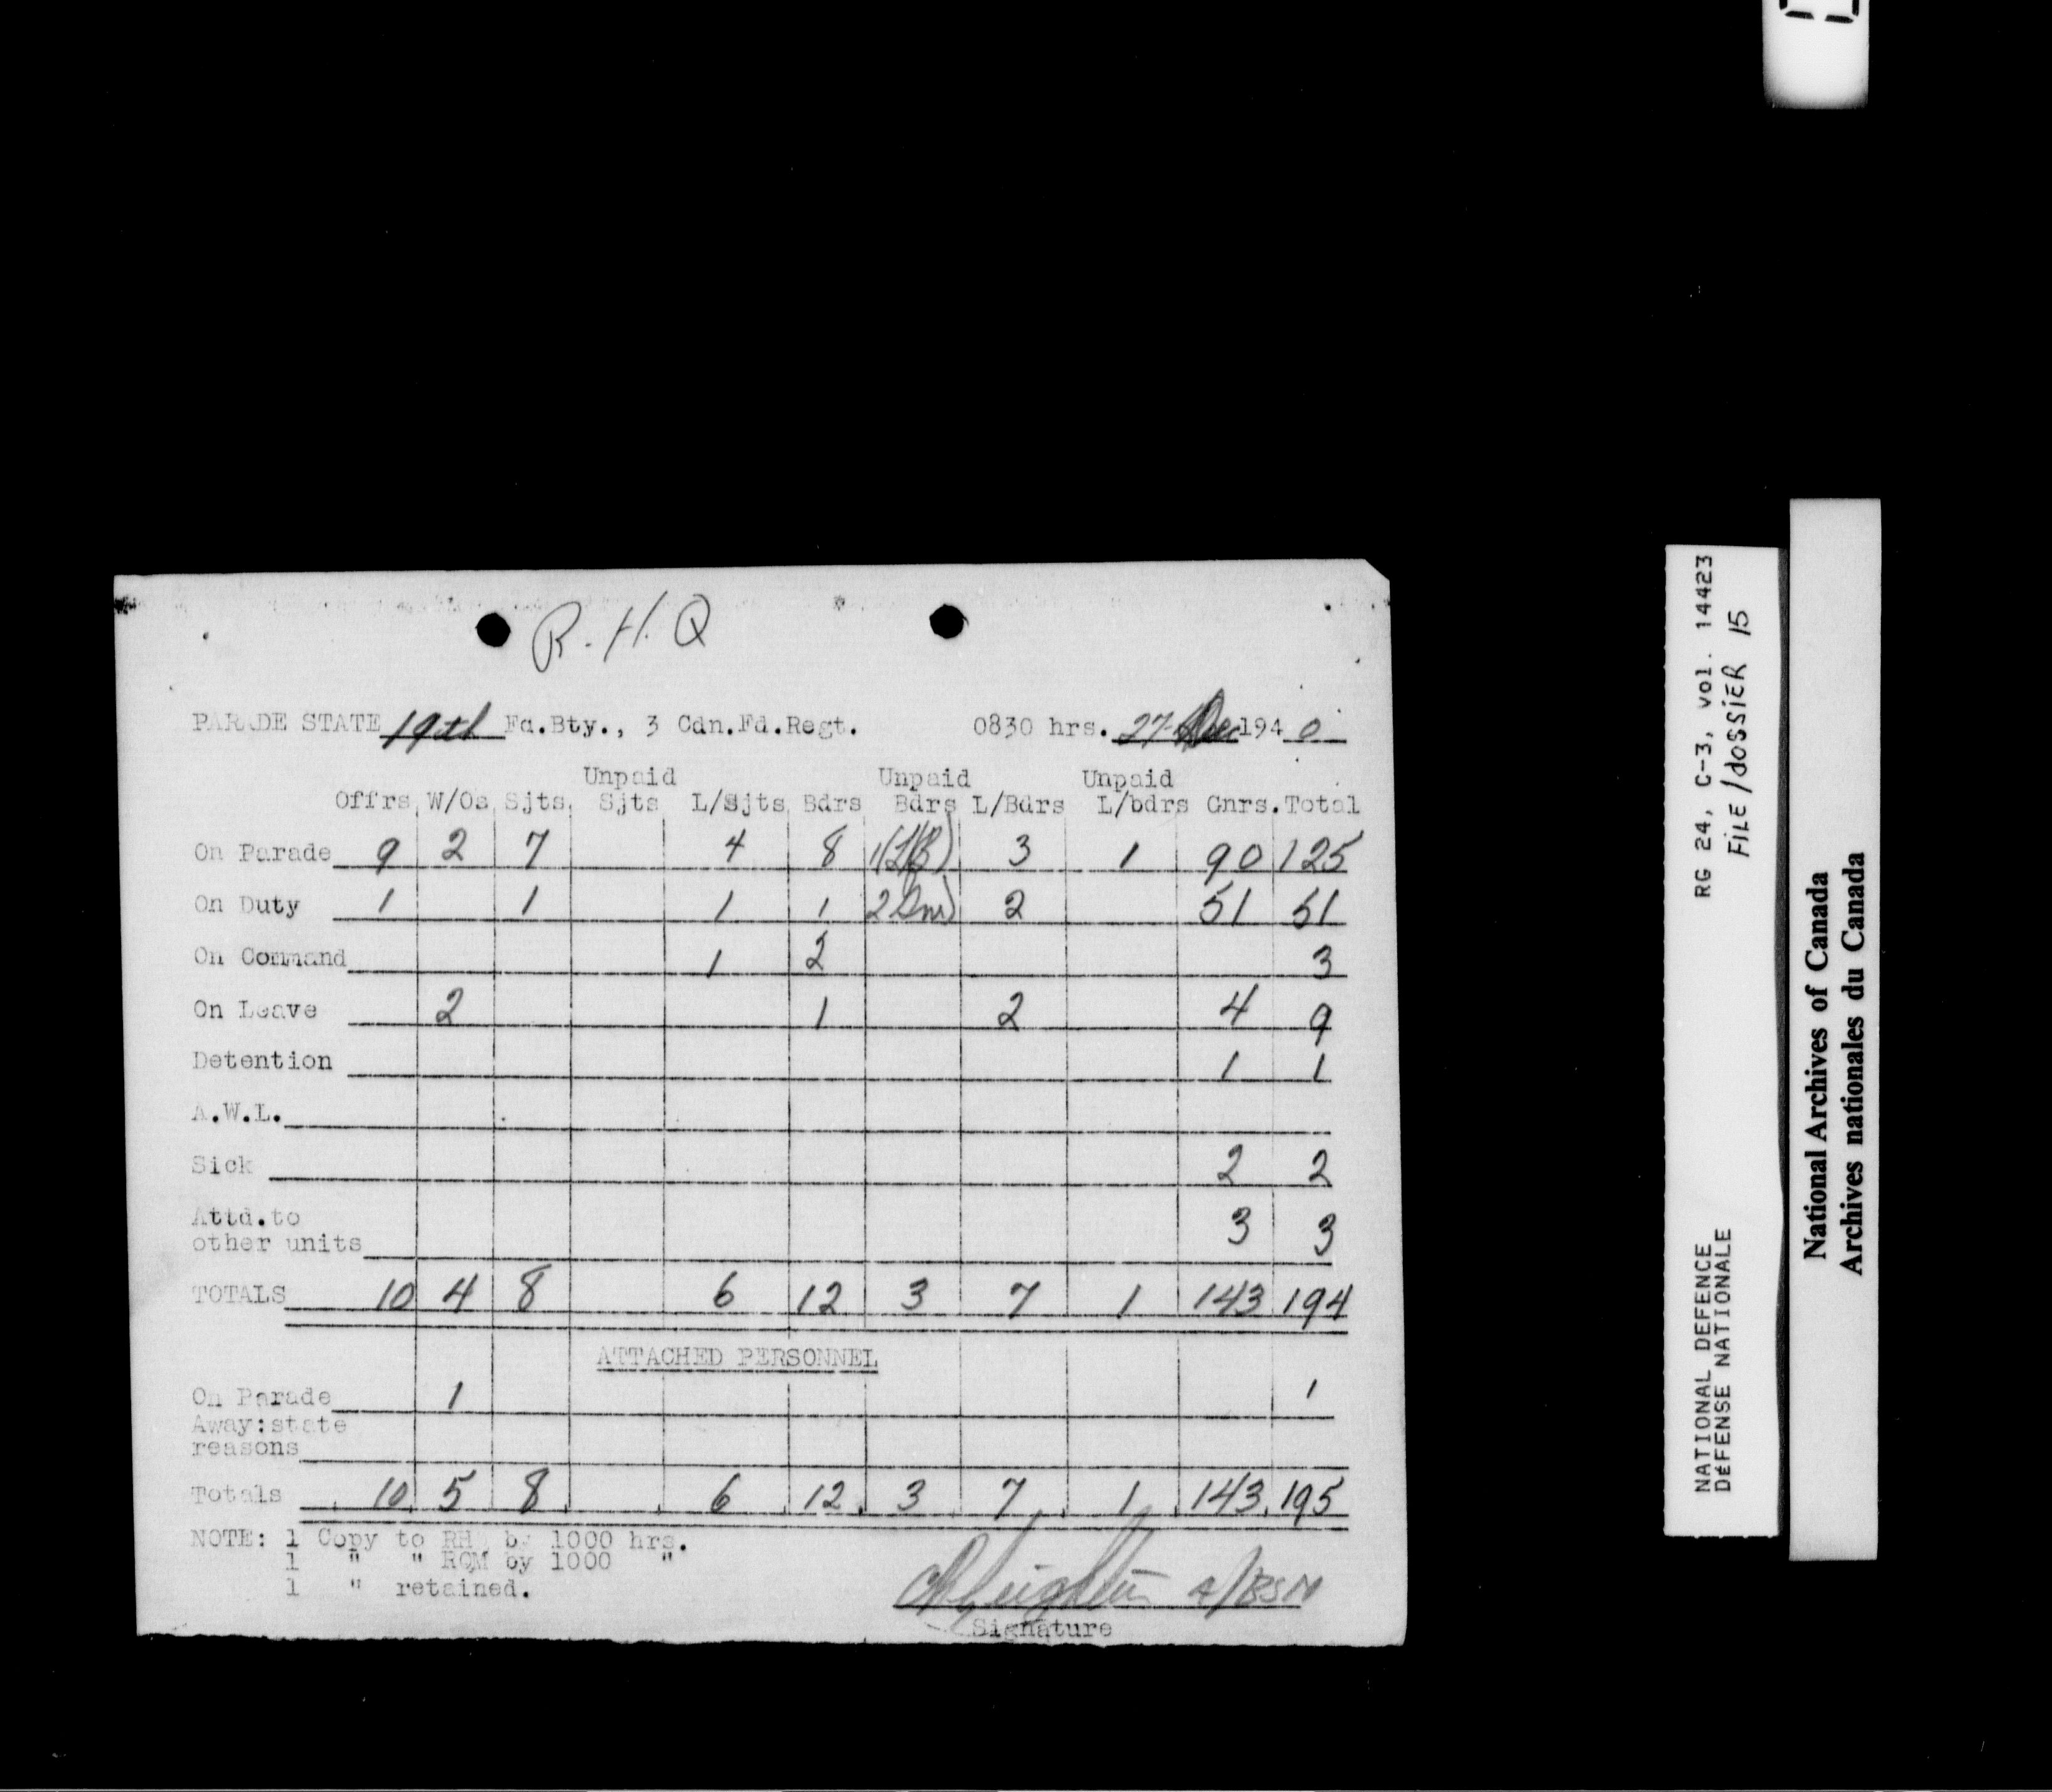 R.H.Q
PARADE STATE 19th Fd.Bty., 3 Cdn.Fd.Regt. 0830 hrs. 27 Dec 1940
Unpaid Unpaid Unpaid
Offrs W/Os Sjts. Sjts L/Sjts Bdrs Bdrs L/Bdrs L/bdrs Gnrs. Total
On Parade 9 2 7 4 8 1(L/B) 3 1 90 125
On Duty 1 1 1 1 2 Gnr) 2 51 51
On Command 1 2 3
On Leave 2 1 2 4 9
Detention 1 1
A.W.L.
Sick 2 2
Attd.to
other units 3 3
TOTALS 10 4 8 6 12 3 7 1 143 194
ATTACHED PERSONNEL
On Parade 1 1
Away:state
reasons
Totals 10 5 8 6 12 3 7 1 143 195
NOTE: 1 Copy to RH by 1000 hrs.
1 " " RQM by 1000 "
1 " retained.
a/BSM
Signature
RG 24, C-3, vol. 14423
FILE/dOSSIER 15
NATIONAL DEFENCE
DéFENSE NATIONALE
National Archives of Canada
Archives nationales du Canada